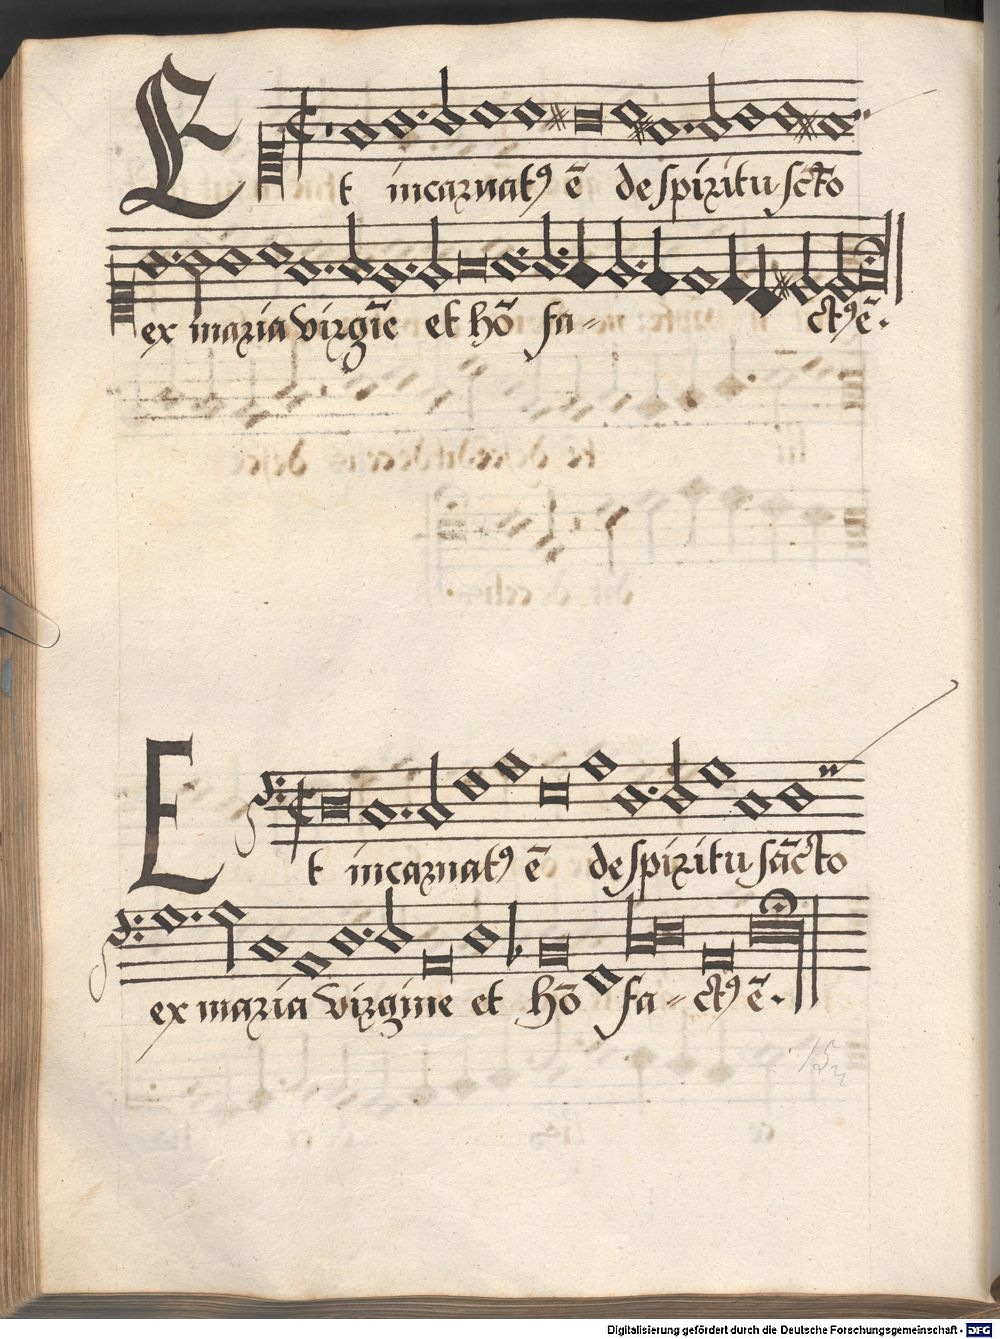 Et incarnatꝰ ē de spiritu sc̄to
ex maria virgīe et hō fa- ctꝰ ē.
Et incarnatꝰ ē de spiritu sāc̄to
ex maria virgine et hō fa- ctꝰ ē.
Digitalisierung gefördert durch die Deutsche Forschungsgemeinschaft - DFG